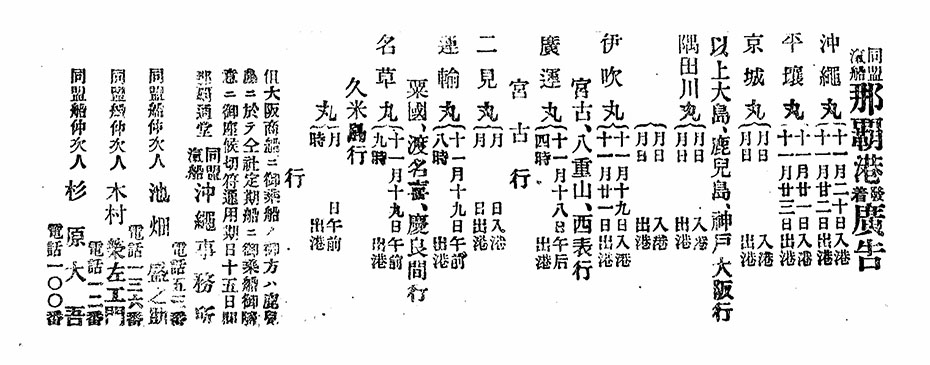 同盟汽船那覇港發着廣告
沖繩丸 十一月二十日入港
十一月廿二日出港
平壤丸 十一月廿一日入港
十一月廿三日出港
京城丸 月 日 入港
月 日 出港
以上大島、鹿兒島、神戸、大阪行
隅田川丸 月 日 入港
月 日 出港
伊吹丸 十一月十九日入港
十一月廿一日出港
宮古、八重山、西表行
廣運丸 十一月十八日午后
四時 出港
宮古行
二見丸 月 日入港
月 日出港
運輸丸 十一月十九日午前
八時 出港
粟國、渡名喜、慶良間行
名草丸 十一月十九日午前
九時 出港
久米島行
丸 月 日午前
時 出港
行
但大阪商船ニ御乘船ノ御方ハ鹿兒
島ニ於テ仝社定期船ニ御乘船御隨
意ニ御座候切符通用期日十五日間
那覇通堂 同盟汽船 沖繩事務所
電話五三番
同盟船仲次人 池畑盛之助
電話一三六番
同盟船仲次人 木村榮左エ門
電話一二番
同盟船仲次人 杉原大吾
電話一〇〇番